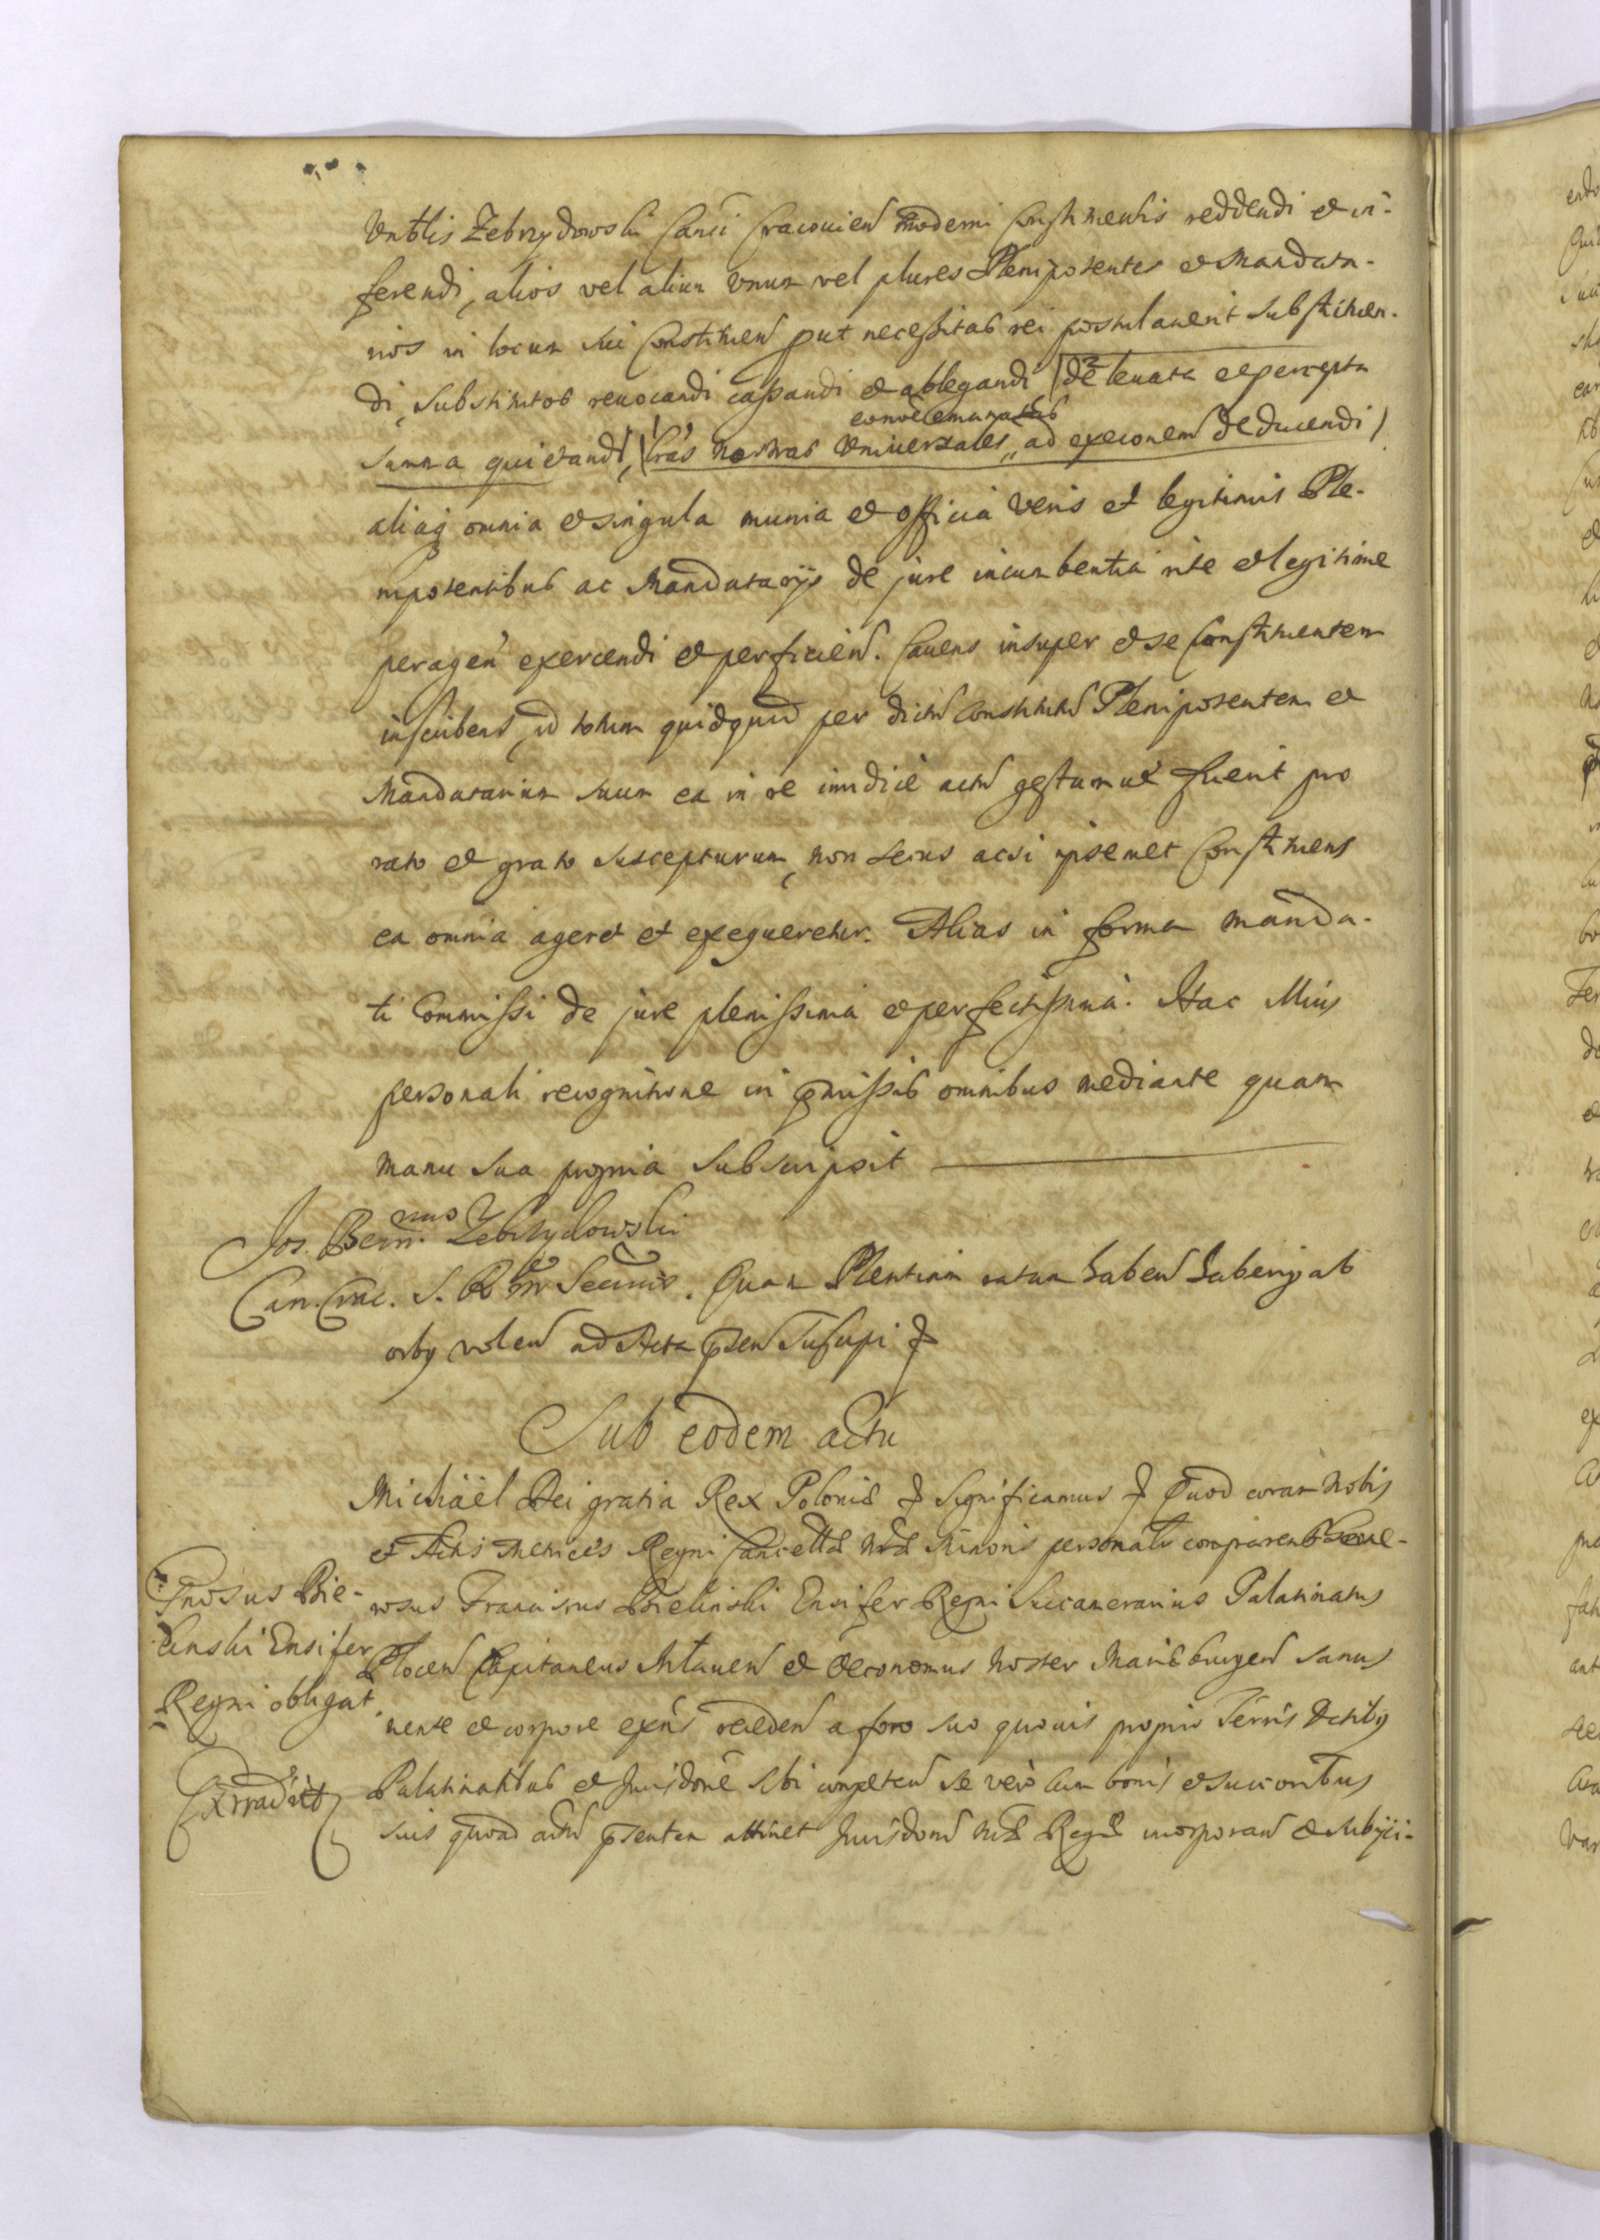 Vnblis Zebrzydowski Canci Cracovien moderni Constituentis reddendi et in-
ferendi, alios vel alium unum vel plures Plenipotentes et Mandata-
rios in locum sui Constituen put necessitas rei postulaverit substituen-
di, substitutos revocandi cassandi et ablegandi de levata et percepta
conve emanatas
summa quietandi, lras nostras Universales, ad exeonem deducendi
aliaq omnia et singula munia et officia veris et legitimis Ple-
nipotentibus ac Mandatarijs de jure incumbentia rite et legitime
peragen exercendi et perficien. Cavens insuper et se Constituentem
inscribens, id totum quidquid per dictu Constitutu Plenipotentem et
Mandatarium suum ea in re iuridice actu gestumve fuerit pro
rato et grato suscepturum, non secus acsi ipsemet Constituens
ea omnia ageret et exequeretur. Alias in forma manda-
ti Commissi de jure plenissima et perfectissima. Hac Illius
personali recognitione in pmissis omnibus mediante quam
manu sua propria subscripsit
Jos. Bern. Zebrzydowski
Can. Crac. S. R. M. Secrius. Quam Plentiam ratam haben haberiq ab
oibq volen ad Acta psen suscepi
Sub eodem actu
Michaël Dei gratia Rex Poloniæ Significamus Quod coram Nobis
et Actis Metrices Regni Cancellæ Nræ Minoris personalr comparens Gene-
rosus Franciscus Bielinski Ensifer Regni Succamerarius Palatinatus
Plocen Capitaneus Mlaven et Oeconomus Noster Mariæburgen sanus
mente et corpore exns receden a foro suo quovis proprio Terris Actibq
Palatinatibus et Jurisdone sibi competen se vero cum bonis et successoribus
suis quoad actu psentem attinet Jurisdoni Nræ Regæ incorporan et subiici-
Gnosus Bie-
linski Ensifer
Regni obligat
Extradit